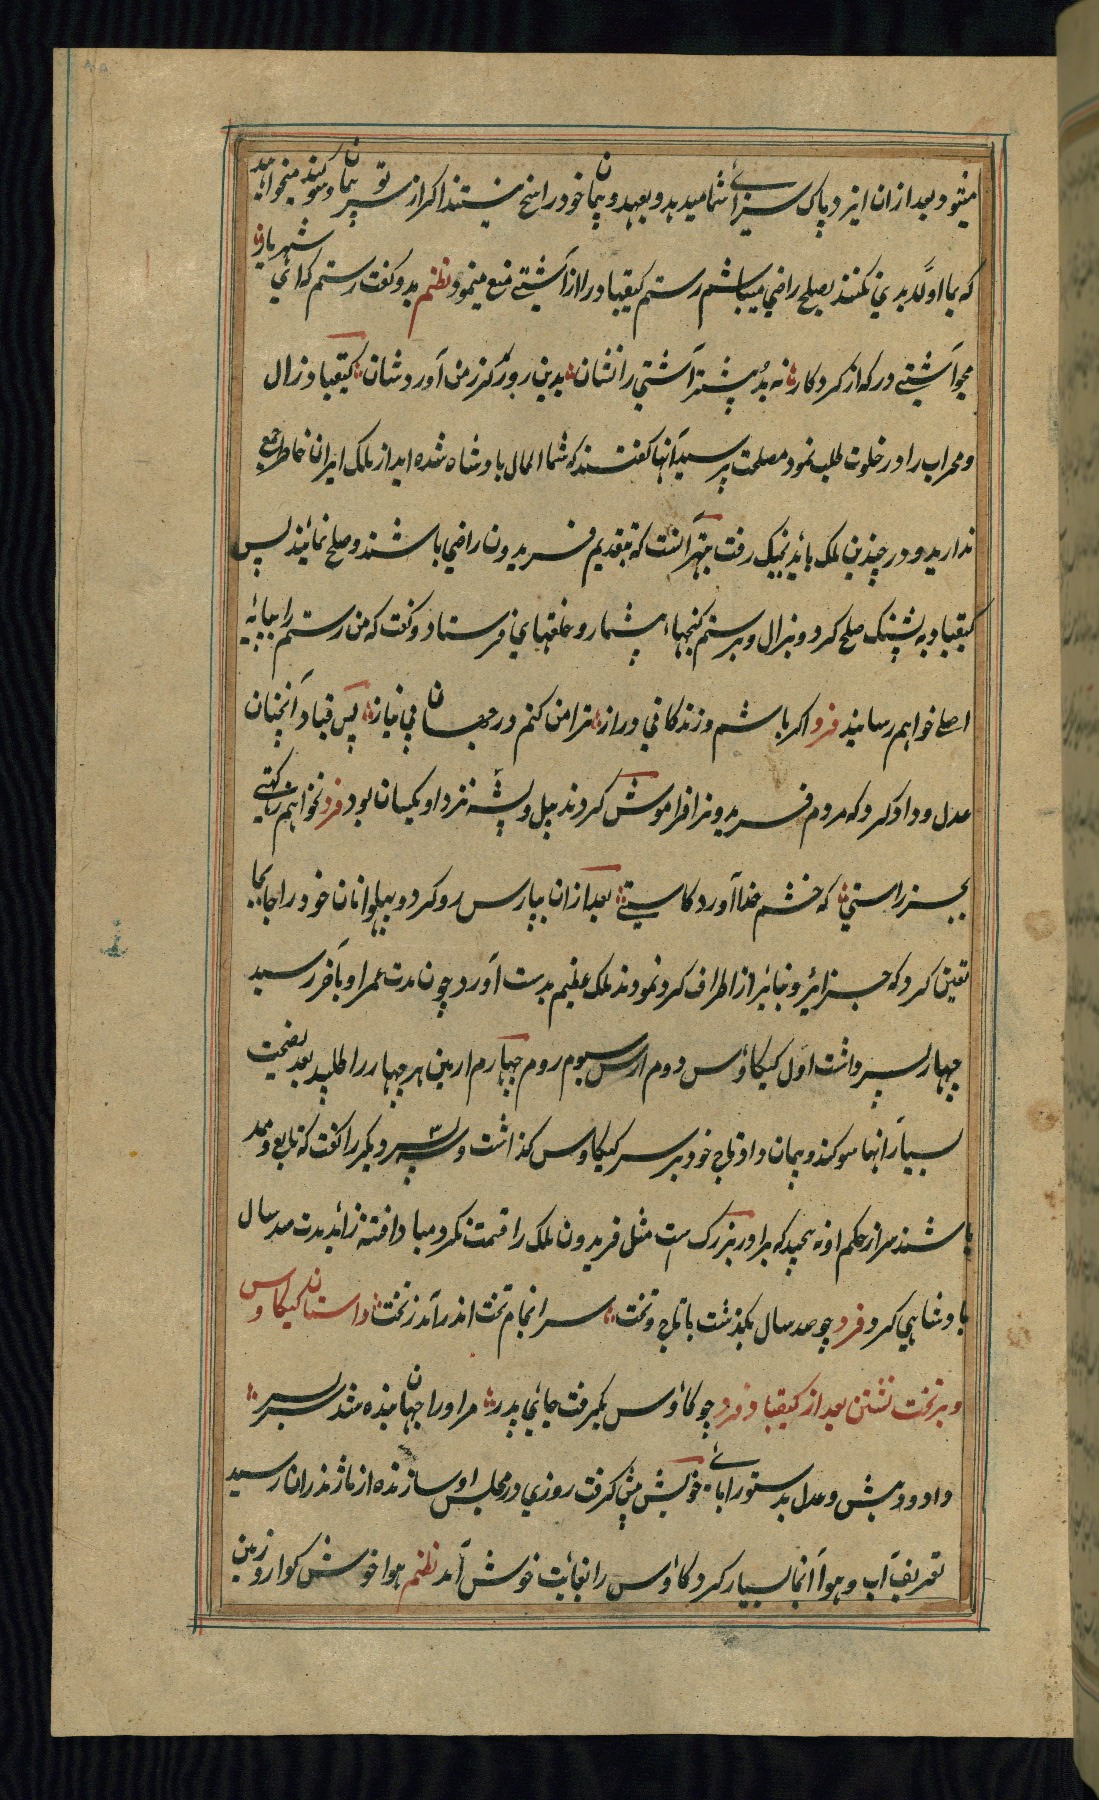 میشود بعد از ان ایزد پاک سزای شما میدهد و بعهد و پیمان خود راسخ نیستند اکر از سر نو پیمان و سوکند میخواهید
که بما اول بدی نکنند بصلح راضی میباشم رستم کیقباد را از آشتی منع مینمود نظم بدو کفت رستم که ای شهریار
مجو آشتی در که کارزار نه بد پیشتر آشتی را نشان بدین روز کرز من آوردشان کیقباد زال
و محراب را در خلوت طلب نمود مصلحت پرسید آنها کفتند که شما الحال بادشاه شده اید از ملک ایران خاطر جمع
ندارید و در چندین ملک باید رفت بهتر آنست که بتقدیم فریدون راضی باشند و صلح نمائید پس
کیقباد به پشنک صلح کرد و بزال و برستم کنجهاء بیشمار و خلعتهای فرستاد و کفت که من رستم را بپایه
اصلی خواهم رسانید فرد اکر باشم و زندکانی دراز ترا من کنم در جهان بی نیاز پس قباد آنچنان
عدل و داد کرد که مردم فریدونرا فراموش کردند پیل و پشه نزد او یکسان بود فرد نخواهم بکیتی
بجز راستی که خشم خدا آورد کاستی بعد از ان بپارس رو کرد و پهلوانان خود را جابجا
تعین کرد که جزائر و بنائر از اطراف کرد نمودند ملک عظیم بدست آورد چون مدت عمر او بآخر رسید
چهار پسر داشت اول کیکاوس دوم ارس سیوم روم چهارم ارمین هر چهار را طلبید بعد نصیحت
بسیار آنها سوکند و پیمان داد و تاج خود بر سر کیکاوس کذاشت و سه پسر دیکر را کفت که تابع و ممد
باشند سر از حکم او نه پیچید که برادر بزرک است مثل فریدون ملک را قسمت نکرد مبادا فتنه زاید مدت صد سال
بادشاهی کرد فرد چو صد سال بکذشت با تاج و تخت سرانجام تخت اندر آمد ز تخت داستان کیکاوس
و بر تخت نشستن بعد از کیقباد فرد چو کاوس بکرفت جای پدر مر او را جهان بنده شد سر بسر
داد و دهش و عدل بدستور آبای خویش پیش کرفت روزی در مجلس او سازنده از ماژندران رسید
تعریف آب و هوا آنجا بسیار کرد کاوس را بغایت خوش آمد نظم هوا خوش کوار و زمین